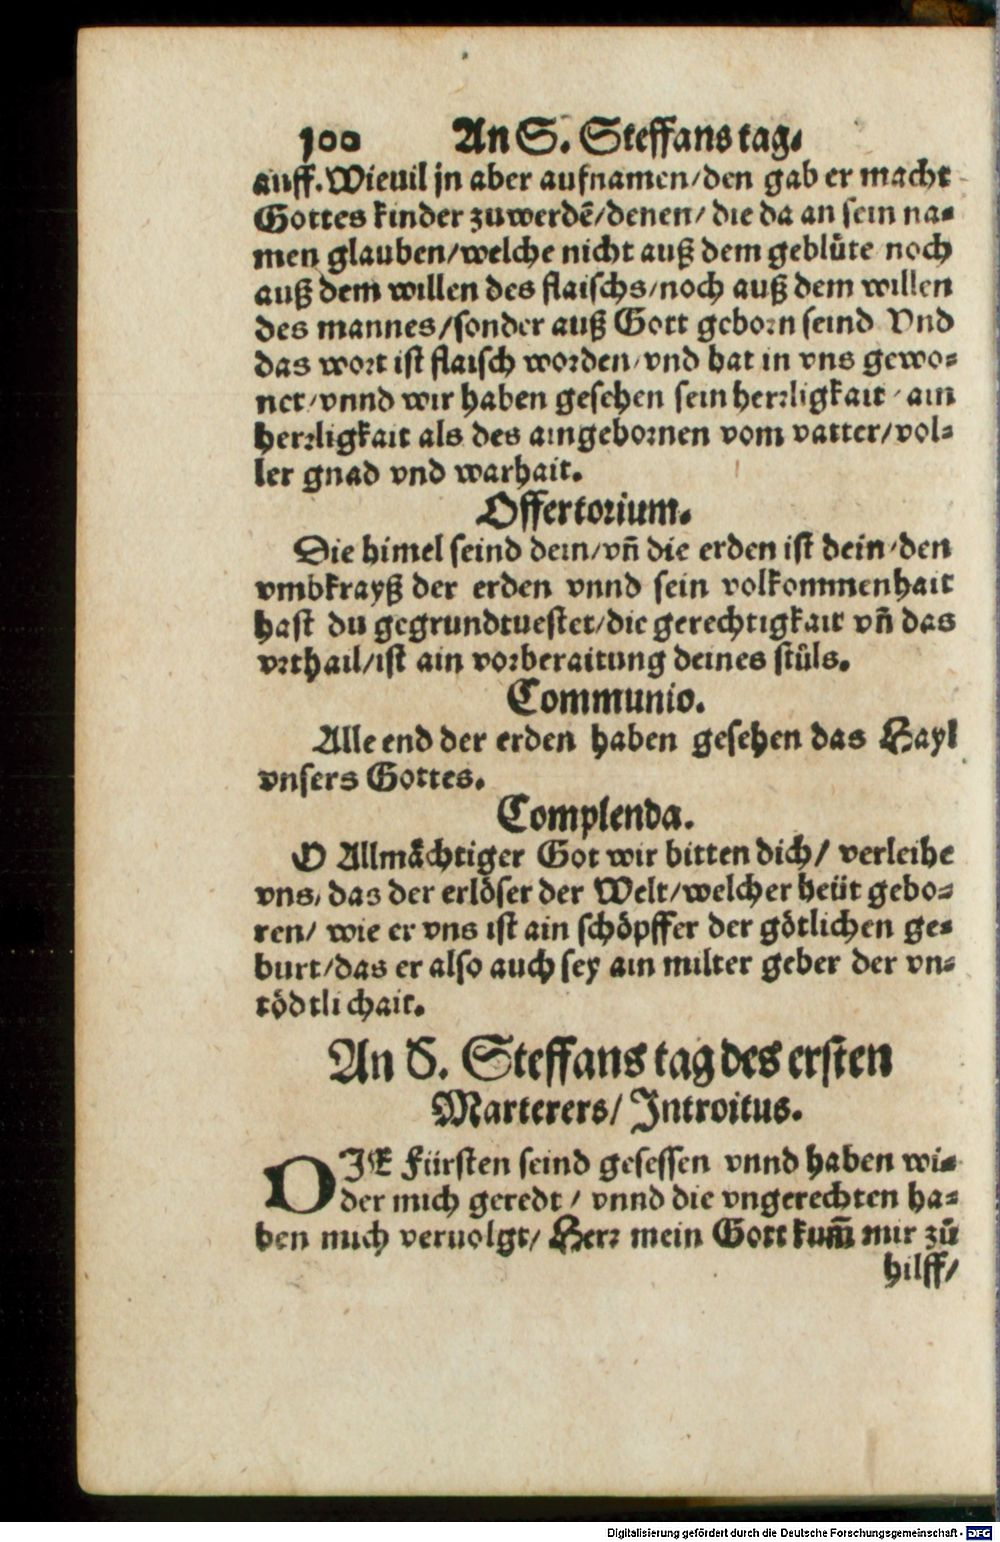 100 An S. Steffans tag.
auff. Wieuil jn aber aufnamen/den gab er macht
Gottes kinder zuwerdẽ/denen/ die da an sein na-
men glauben/welche nicht auß dem geblüte noch
auß dem willen des flaischs/noch auß dem willen
des mannes/sonder auß Gott geborn seind Vnd
das wort ist flaisch worden/vnd hat in vns gewo-
net/vnnd wir haben gesehen sein herrligkait/ ain
herrligkait als des aingebornen vom vatter/vol-
ler gnad vnd warhait.
Offertorium.
Die himel seind dein/vñ die erden ist dein/den
vmbkrayß der erden vnnd sein volkommenhait
hast du gegrundtuestet/die gerechtigkait vñ das
vrthail/ist ain vorberaitung deines stůls.
Communio.
Alle end der erden haben gesehen das Hayl
vnsers Gottes.
Complenda.
O Allmåchtiger Got wir bitten dich/ verleihe
vns/das der erlöser der Welt/welcher heüt gebo-
ren/ wie er vns ist ain schöpffer der götlichen ge-
burt/das er also auch sey ain milter geber der vn-
tödtlichait.
An S. Steffans tag des ersten
Marterers/ Introitus.
DIE Fürsten seind gesessen vnnd haben wi-
der mich geredt/ vnnd die vngerechten ha-
ben mich veruolgt/ Herr mein Gott kum̃ mir zů
hilff/
Digitalisierung gefördert durch die Deutsche Forschungsgemeinschaft - DFG